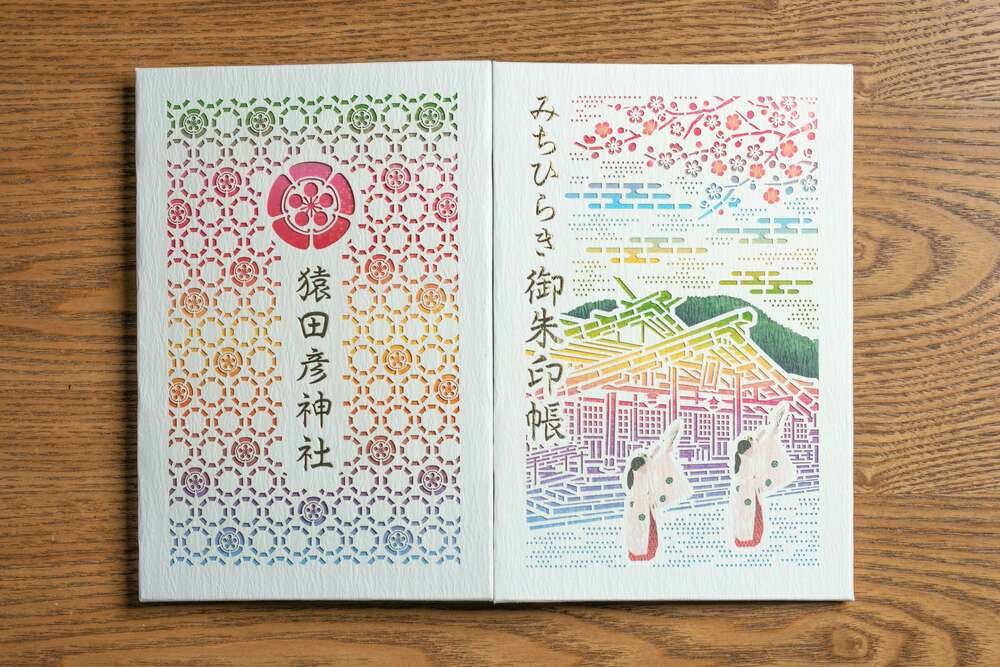 みちひらき御朱印帳
猿田彦神社